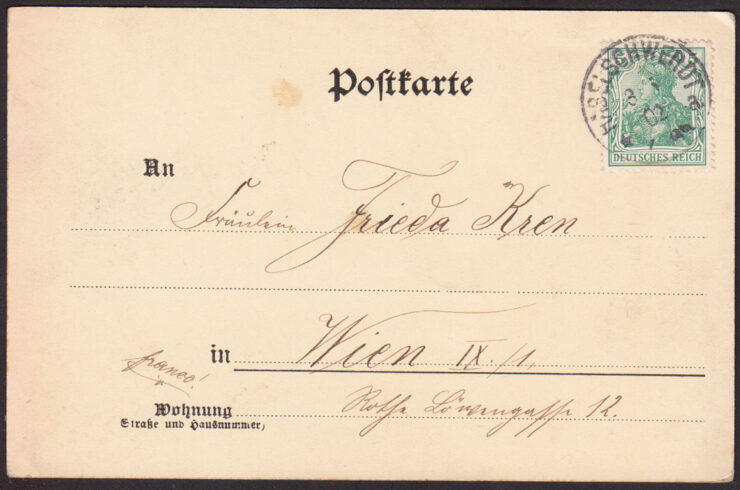 Postkarte
HABELSCHWERDT
02
DEUTSCHES REICH
An
Fräulein Frieda Kren
in Wien IX/1,
franco!
Wohnung Rothe Löwengasse 12.
Straße und Hausnummer